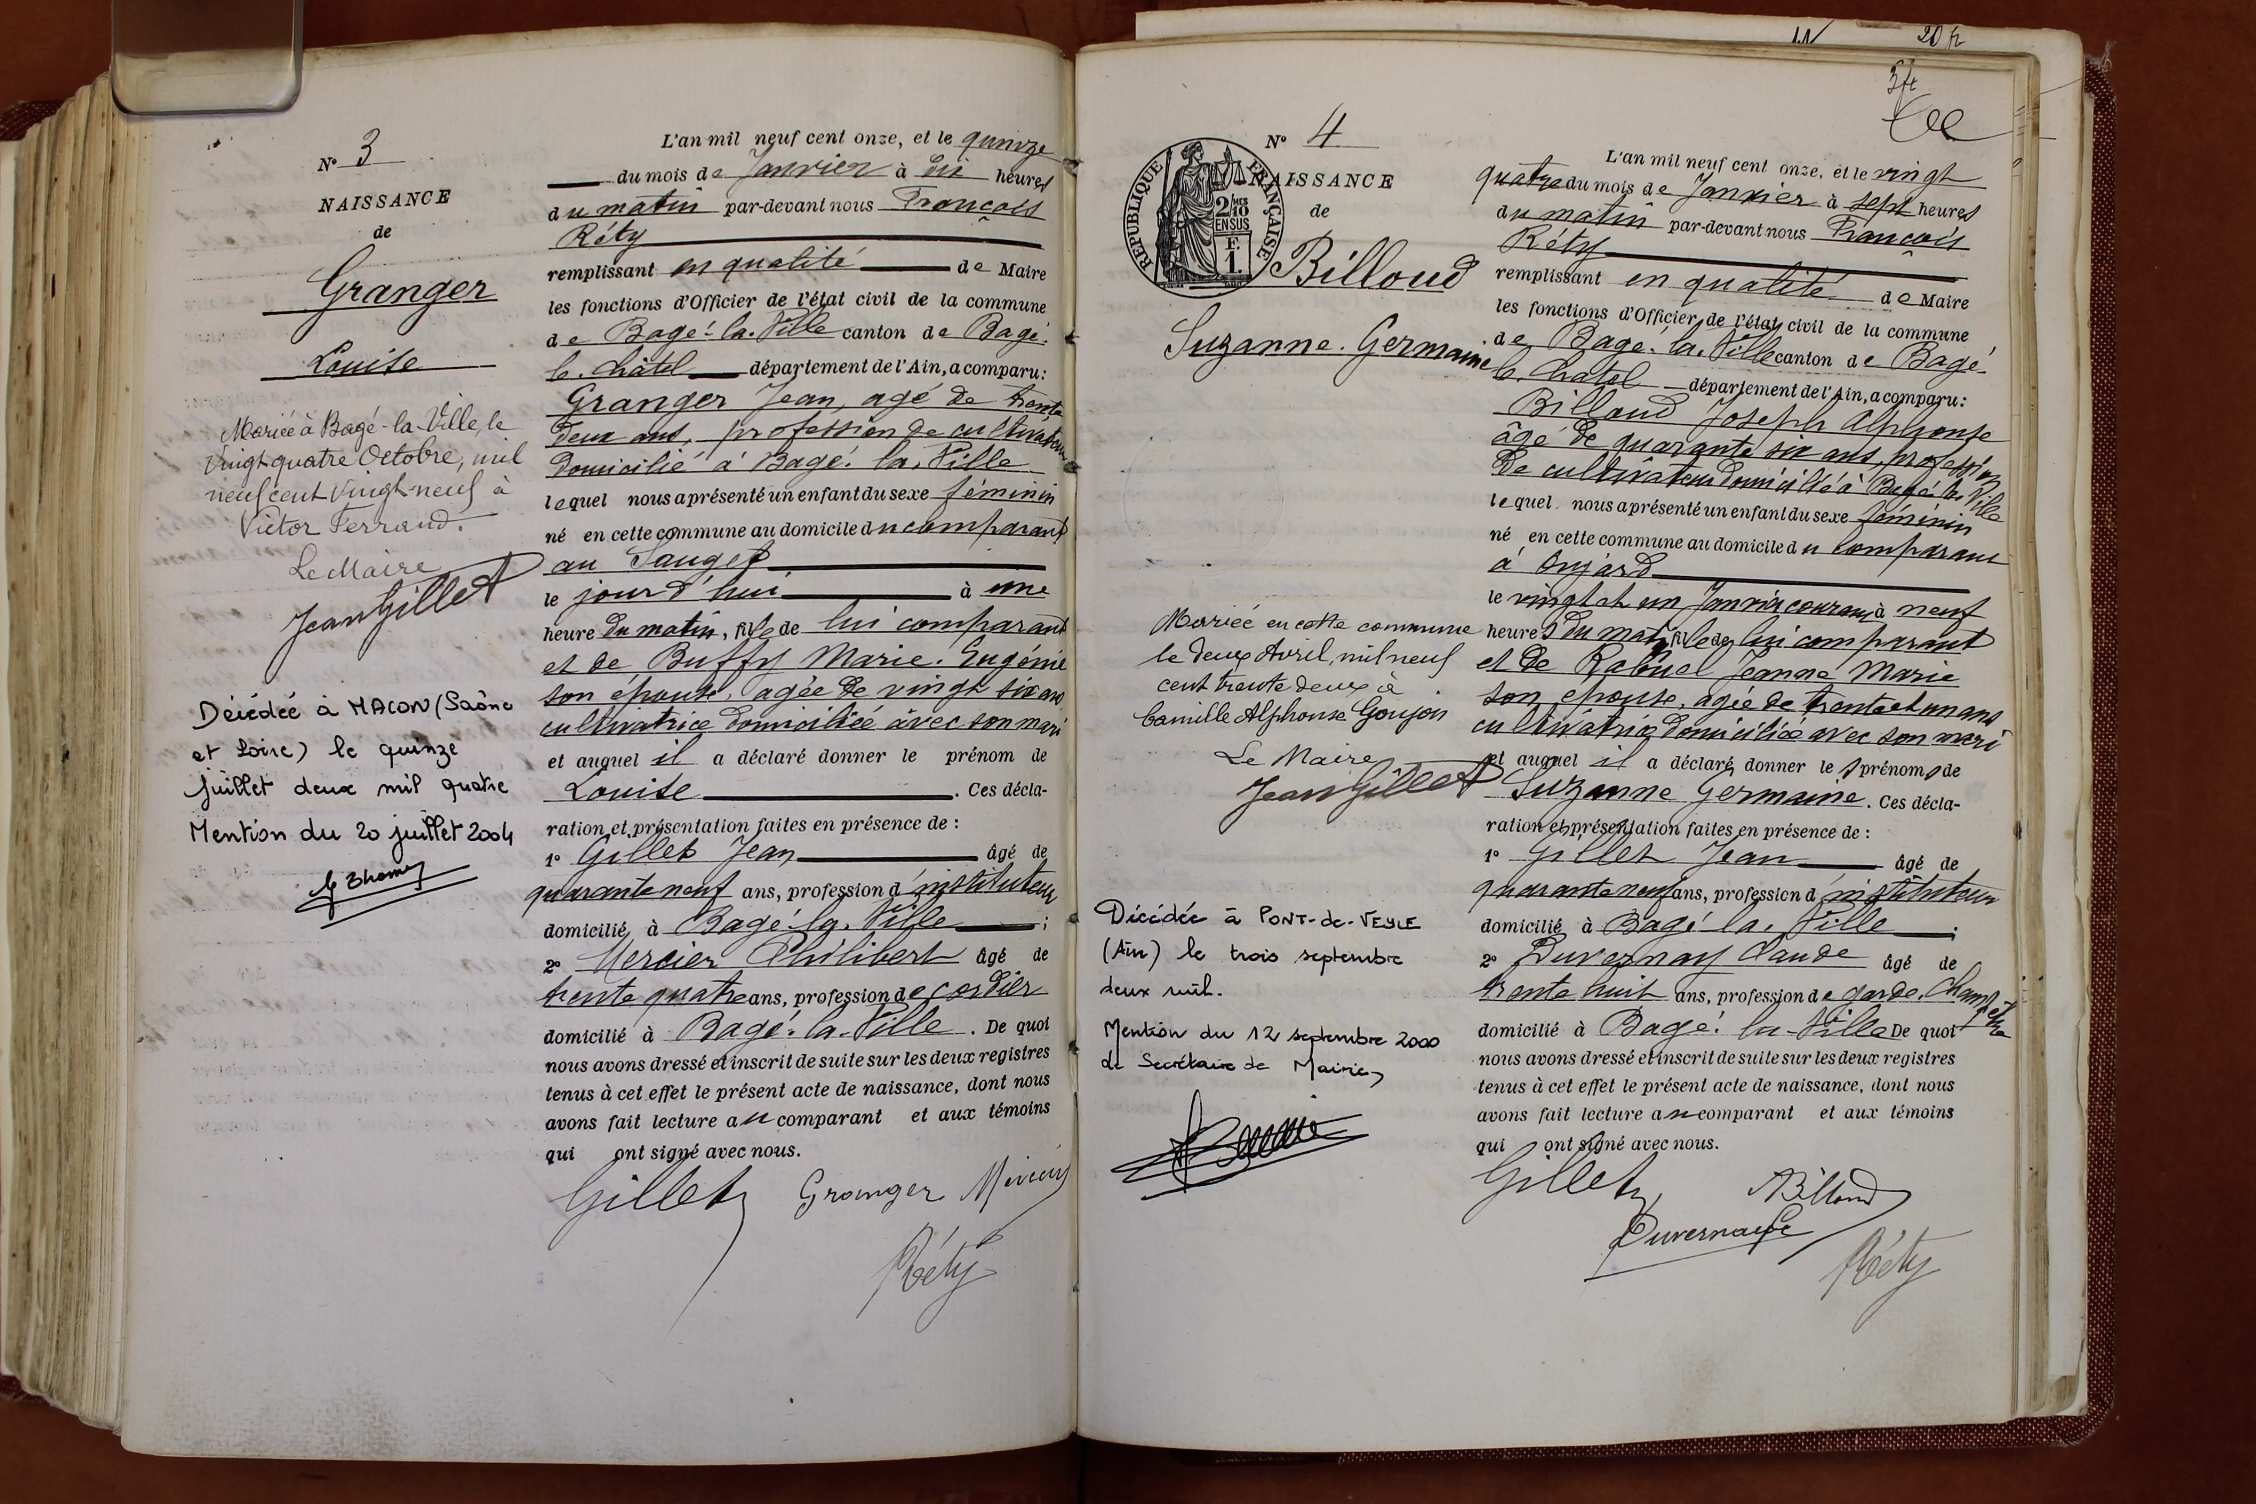 N° 3
NAISSANCE
de
Granger
Louise
Mariée à Bagé-la-Ville, le
vingt quatre Octobre, mil
neuf cent vingt-neuf à
Victor Ferrand.
Le Maire
Jean Gillet
Décédée à MACON (Saône
et Loire) le quinze
juillet deux mil quatre
Mention du 20 juillet 2004
L'an mil neuf cent onze, et le quinze
du mois de Janvier à dix heures
du matin par-devant nous François
Réty
remplissant en qualité de Maire
les fonctions d'Officier de l'état civil de la commune
de Bagé-la-Ville canton de Bagé-
le-Châtel département de l'Ain, a comparu:
Granger Jean, agé de trente
deux ans, profession de cultivateur
domicilié à Bagé-la-Ville
lequel nous a présenté un enfant du sexe féminin
né en cette commune au domicile du comparant
au Sauget
le jourd'hui à une
heure du matin, fille de lui comparant
et de Buffy Marie-Eugénie
son épouse, agée de vingt six ans
cultivatrice domiciliée avec son mari
et auquel il a déclaré donner le prénom de
Louise. Ces décla-
ration et présentation faites en présence de :
1° Gillet Jean âgé de
quarante neuf ans, profession d'instituteur
domicilié à Bagé-la-Ville ;
2° Mercier Philibert âgé de
trente quatre ans, profession de cordier
domicilié à Bagé-la-Ville. De quoi
nous avons dressé et inscrit de suite sur les deux registres
tenus à cet effet le présent acte de naissance, dont nous
avons fait lecture au comparant et aux témoins
qui ont signé avec nous.
Gillet Granger Mercier
Réty
20 fr
3 fr
N° 4
NAISSANCE
de
RÉPUBLIQUE FRANÇAISE
2/10 EN SUS
F. 1.
Billoud
Suzanne-Germaine
Mariée en cette commune
le deux Avril, mil neuf
cent trente deux à
Camille Alphonse Goujon
Le Maire
Jean Gillet
Décédée à PONT-de-VEYLE
(Ain) le trois septembre
deux mil.
Mention du 12 septembre 2000
Le Secrétaire de Mairie,
L'an mil neuf cent onze, et le vingt
quatre du mois de Janvier à sept heures
du matin par-devant nous François
Réty
remplissant en qualité de Maire
les fonctions d'Officier de l'état civil de la commune
de Bagé-la-Ville canton de Bagé-
le-Chatel département de l'Ain, a comparu:
Billoud Joseph Alphonse
âgé de quarante six ans, profession
de cultivateur domicilié à Bagé-la-Ville
lequel nous a présenté un enfant du sexe féminin
né en cette commune au domicile du comparant
à Onjard
le vingt et un Janvier courant à neuf
heures du matin, fille de lui comparant
et de Rabuel Jeanne Marie
son épouse, agée de trente et un ans
cultivatrice domiciliée avec son mari
et auquel il a déclaré donner les prénoms de
Suzanne Germaine. Ces décla-
ration et présentation faites en présence de :
1° Gillet Jean âgé de
quarante neuf ans, profession d'instituteur
domicilié à Bagé-la-Ville ;
2° Duvernay Claude âgé de
trente huit ans, profession de garde-Champêtre
domicilié à Bagé-la-Ville De quoi
nous avons dressé et inscrit de suite sur les deux registres
tenus à cet effet le présent acte de naissance, dont nous
avons fait lecture au comparant et aux témoins
qui ont signé avec nous.
Gillet ABilloud
Duvernay
Réty